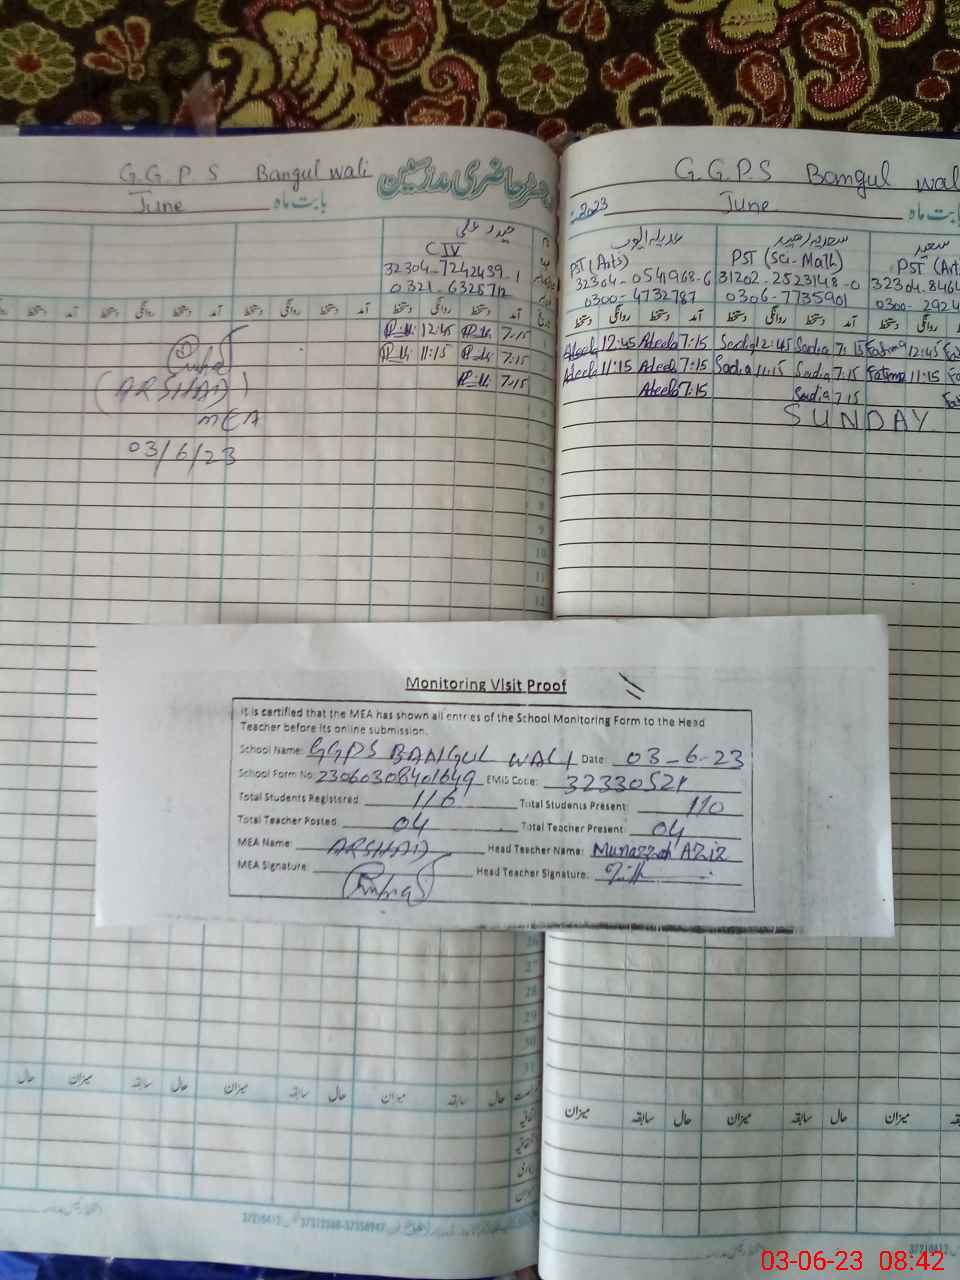 G.G.P.S Bangul wali
دفتر حاضری مدرسین
June
بابت ماہ
حیدر علی
C IV
32304-7242439-1
0321-6328712
آمد دستخط روانگی دستخط
7:15 12:45
7:15 11:15
7:15
(ARSHAD)
MEA
03/6/23
7
8
9
10
11
12
G.G.P.S Bangul wal
2023
June
بابت ماہ
عدیلہ ایوب
PST (Arts)
32304-0541968-6
0300-4732787
سعدیہ رشید
PST (Sci-Math)
31202-2523148-0
0306-7735901
سعید
PST (Art
32304-8464
0300-2924
دستخط روانگی دستخط آمد دستخط روانگی دستخط آمد دستخط روانگی
Adeela 12:45 Adeela 7:15 Sadia 12:45 Sadia 7:15 Fatima 12:45 Fa
Adeela 11:15 Adeela 7:15 Sadia 11:15 Sadia 7:15 Fatima 11:15 Fa
Adeela 7:15 Sadia 7:15 Fa
SUNDAY
Monitoring Visit Proof
It is certified that the MEA has shown all entries of the School Monitoring Form to the Head
Teacher before its online submission.
School Name: GGPS BANGUL WALI Date: 03-6-23
School Form No: 23060308401649 EMIS Code: 32330521
Total Students Registered: 116 Total Students Present: 110
Total Teacher Posted: 04 Total Teacher Present: 04
MEA Name: ARSHAD Head Teacher Name: Munazzah Aziz
MEA Signature: Head Teacher Signature:
27
28
29
30
31
حال میزان سابقہ حال میزان سابقہ حال میزان سابقہ حال
میزان سابقہ حال میزان سابقہ حال میزان
03-06-23 08:42